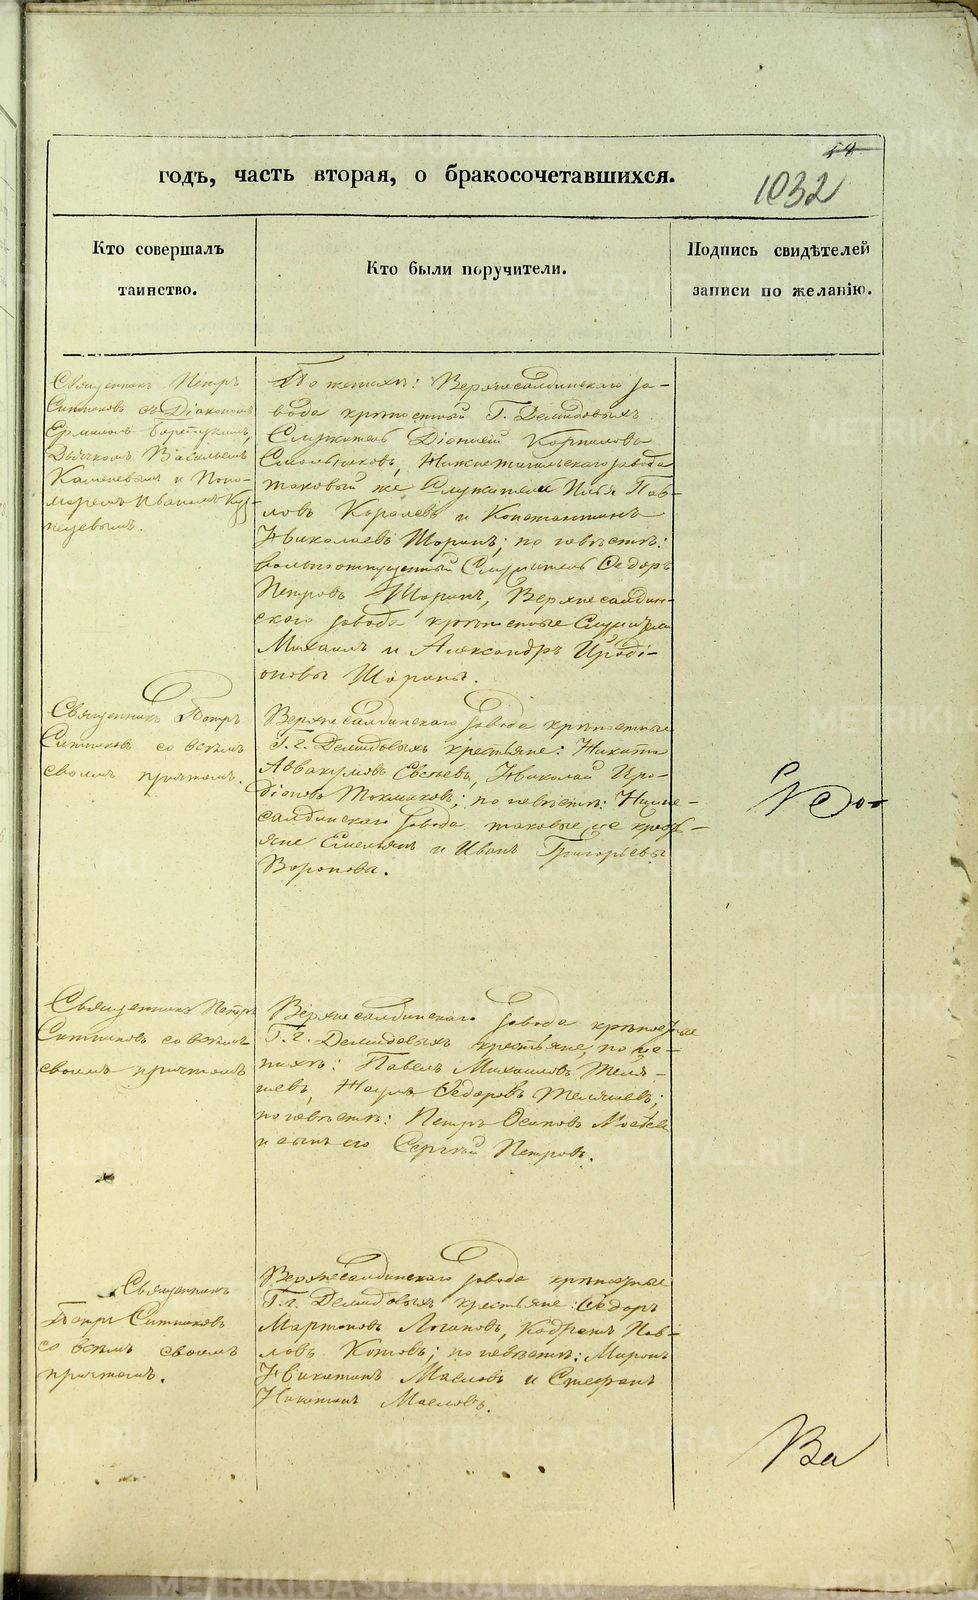 годъ, часть вторая, о бракосочетавшихся.
1032
Кто совершалъ
таинство.
Кто были поручители.
Подпись свидѣтелей
записи по желанію.
Священникъ Петръ
Ситниковъ съ Діакономъ
Дьячкомъ Васильемъ
и Поно-
маремъ Иваномъ Куз-
нецовымъ.
По женихѣ: Верхнесалдинскаго за-
вода крѣпостный Г. Демидовыхъ
Служитель Діонисій Корниловъ
Нижнетагильскаго завода
таковый же Служители Илья Пав-
ловъ Королевъ и Константинъ
Николаевъ Шоринъ; по невѣстѣ:
вольноотпущенный Служитель Ѳедоръ
Петровъ Шоринъ, Верхнесалдин-
скаго завода крѣпостные Служители
Михаилъ и Александръ Иродіо-
новы Шорины.
Священникъ Петръ
Ситниковъ со всѣмъ
своимъ причтомъ.
Верхнесалдинскаго завода крѣпостные
Г. г. Демидовыхъ крестьяне: Никита
Аввакумовъ Евсѣевъ, Николай Иро-
діоновъ Токмаковъ; по невѣстѣ: Нижне-
салдинскаго завода таковые же кресть-
яне Емельянъ и Иванъ Григорьевы
Воронова.
Священникъ Петръ
Ситниковъ со всѣмъ
своимъ причтомъ
Верхнесалдинскаго завода крѣпостные
Г. г. Демидовыхъ крестьяне, по же-
нихѣ: Павелъ Михаиловъ Теля-
шевъ, Наумъ Ѳедоровъ Теляшевъ;
по невѣстѣ: Петръ Осиповъ
и сынъ его Сергѣй Петровъ.
Священникъ
Петръ Ситниковъ
со всѣмъ своимъ
причтомъ.
Верхнесалдинскаго завода крѣпостные
Г. г. Демидовыхъ крестьяне: Ѳедоръ
Мартыновъ Логиновъ, Кодратъ Пав-
ловъ Котовъ; по невѣстѣ: Миронъ
Никитинъ Масловъ и Стефанъ
Никитинъ Масловъ.
Ва